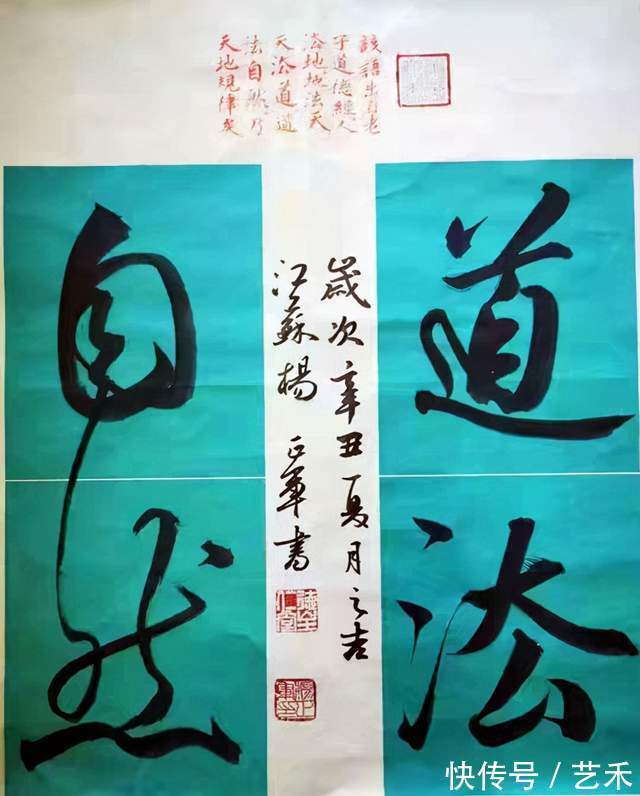 該語出自老
子道德經人
法地地法天
天法道道
法自然乃
天地規律矣
道法
自然
歲次辛丑夏月之吉
江蘇楊正軍書
快传号 / 艺禾